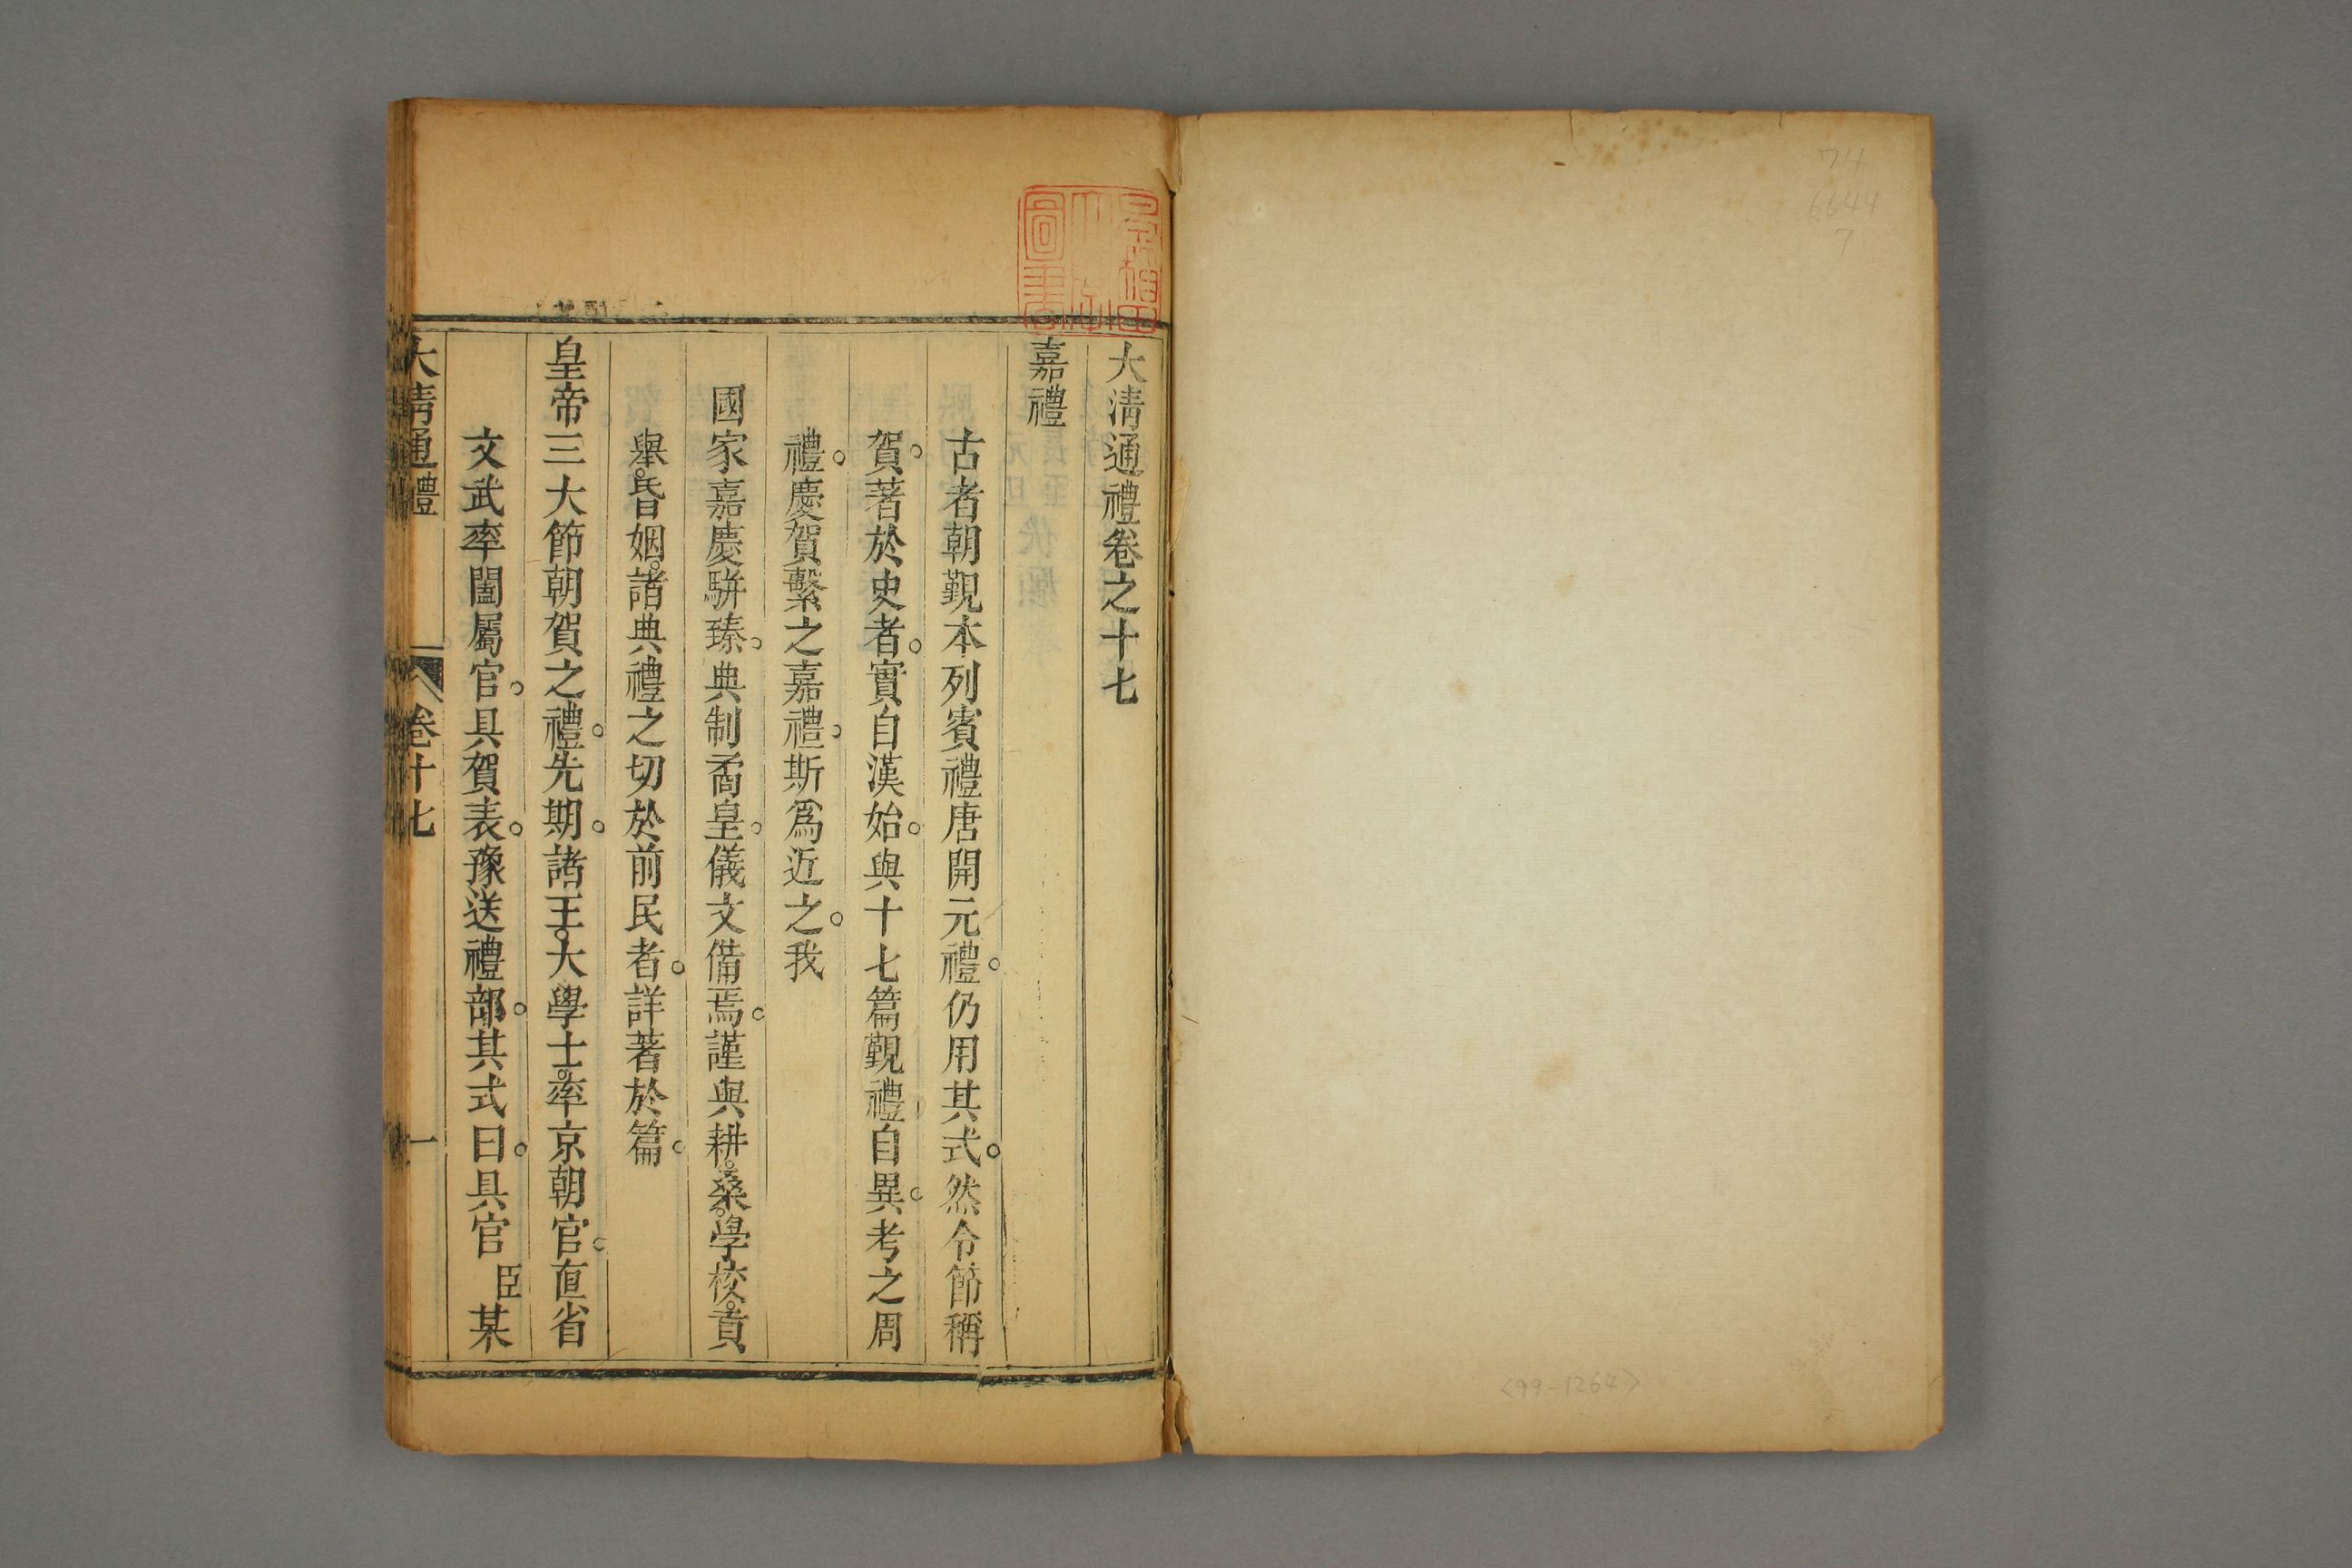 74
6644
7
<99-1264>
大淸通禮卷之十七
嘉禮
古者朝覲本列賓禮唐開元禮。仍用其式。然令節稱
賀。著於史者。實自漢始。與十七篇覲禮自異。考之周
禮。慶賀繫之嘉禮。斯爲近之。我
國家嘉慶駢臻。典制矞皇。儀文備焉。謹與耕。桑。學校。貢
舉。昏姻。諸典禮之切於前民者。詳著於篇。
皇帝三大節朝賀之禮。先期。諸王。大學士。率京朝官。直省
文武率闔屬官。具賀表。豫送禮部。其式曰。具官臣某
大淸通禮 卷十七 一